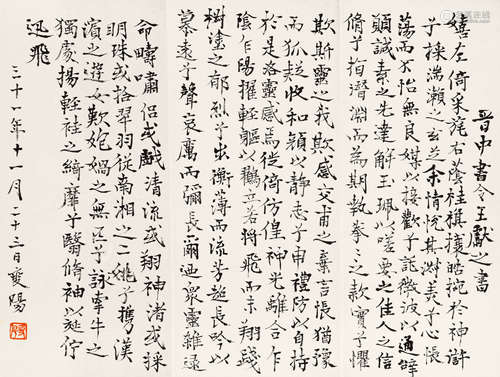 晉中書令王獻之書
嬉左倚采旄右蔭桂旗攘皓腕於神滸
兮採湍瀨之玄芝余情悅其淑美兮心悵
蕩而不怡無良媒以接歡兮託微波以通辭
願誠素之先達解玉珮以嗟要之佳人之信
脩兮指潛淵而為期執拳々之款實兮懼
欺斯靈之我欺感交甫之棄言悵猶豫
而狐疑收和顏以靜志兮申禮防以自持
於是洛靈感焉徙倚仿偟神光離合乍
陰乍陽擢輕軀以鶴立若將飛而未翔踐
椒塗之郁烈兮步衡薄而流芳超長吟以
慕遠兮聲哀厲而彌長爾迺眾靈雜遝
命疇嘯侶或戲清流或翔神渚或採
明珠或拾翠羽從南湘之二姚兮攜漢
濱之遊女歎炮媧之無匹兮詠牽牛之
獨處揚輕袿之綺靡兮翳脩袖以延佇
迅飛
三十一年十一月二十三日燮陽